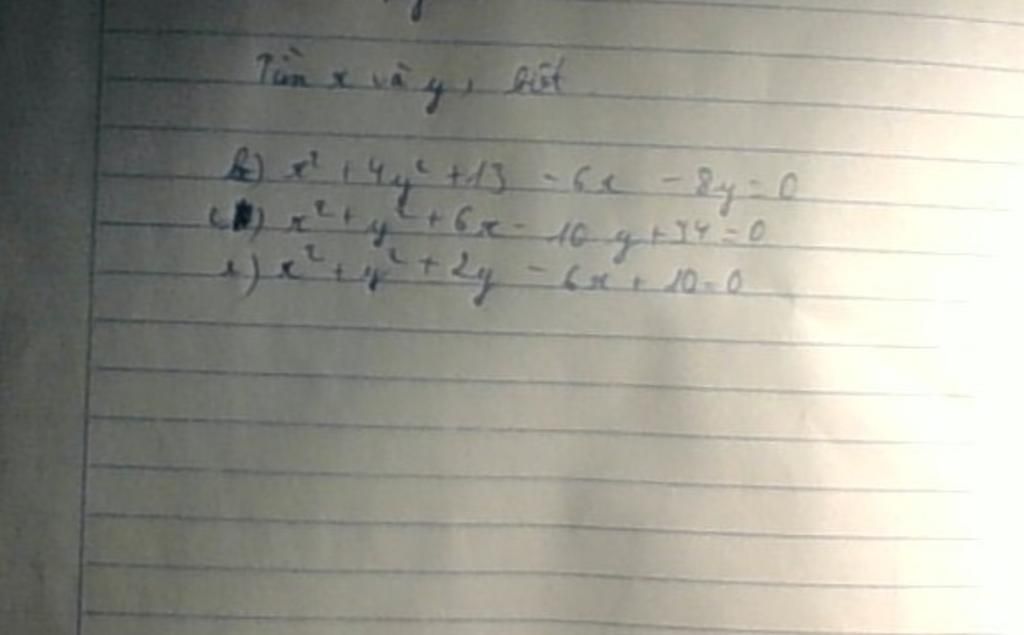 Tìm x và y, biết
b) x² + 4y² + 13 - 6x - 8y = 0
c) x² + y² + 6x - 10y + 34 = 0
x² + y² + 2y - 6x + 10 = 0